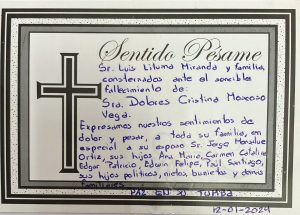 Sentido Pésame
Sr. Luis Lituma Miranda y familia,
consternados ante el sensible
fallecimiento de:
Sra. Dolores Cristina Moscoso
Vega.
Expresamos nuestros sentimientos de
dolor y pesar, a toda su familia, en
especial a su esposo Sr. Jorge Monsalve
Ortiz, sus hijos Ana María, Carmen Catalina
Edgar Patricio, Edwin Felipe, Paúl Santiago,
sus hijos políticos, nietos, bisnietos y demás
familiares.
PAZ EN SU TUMBA
12-01-2024